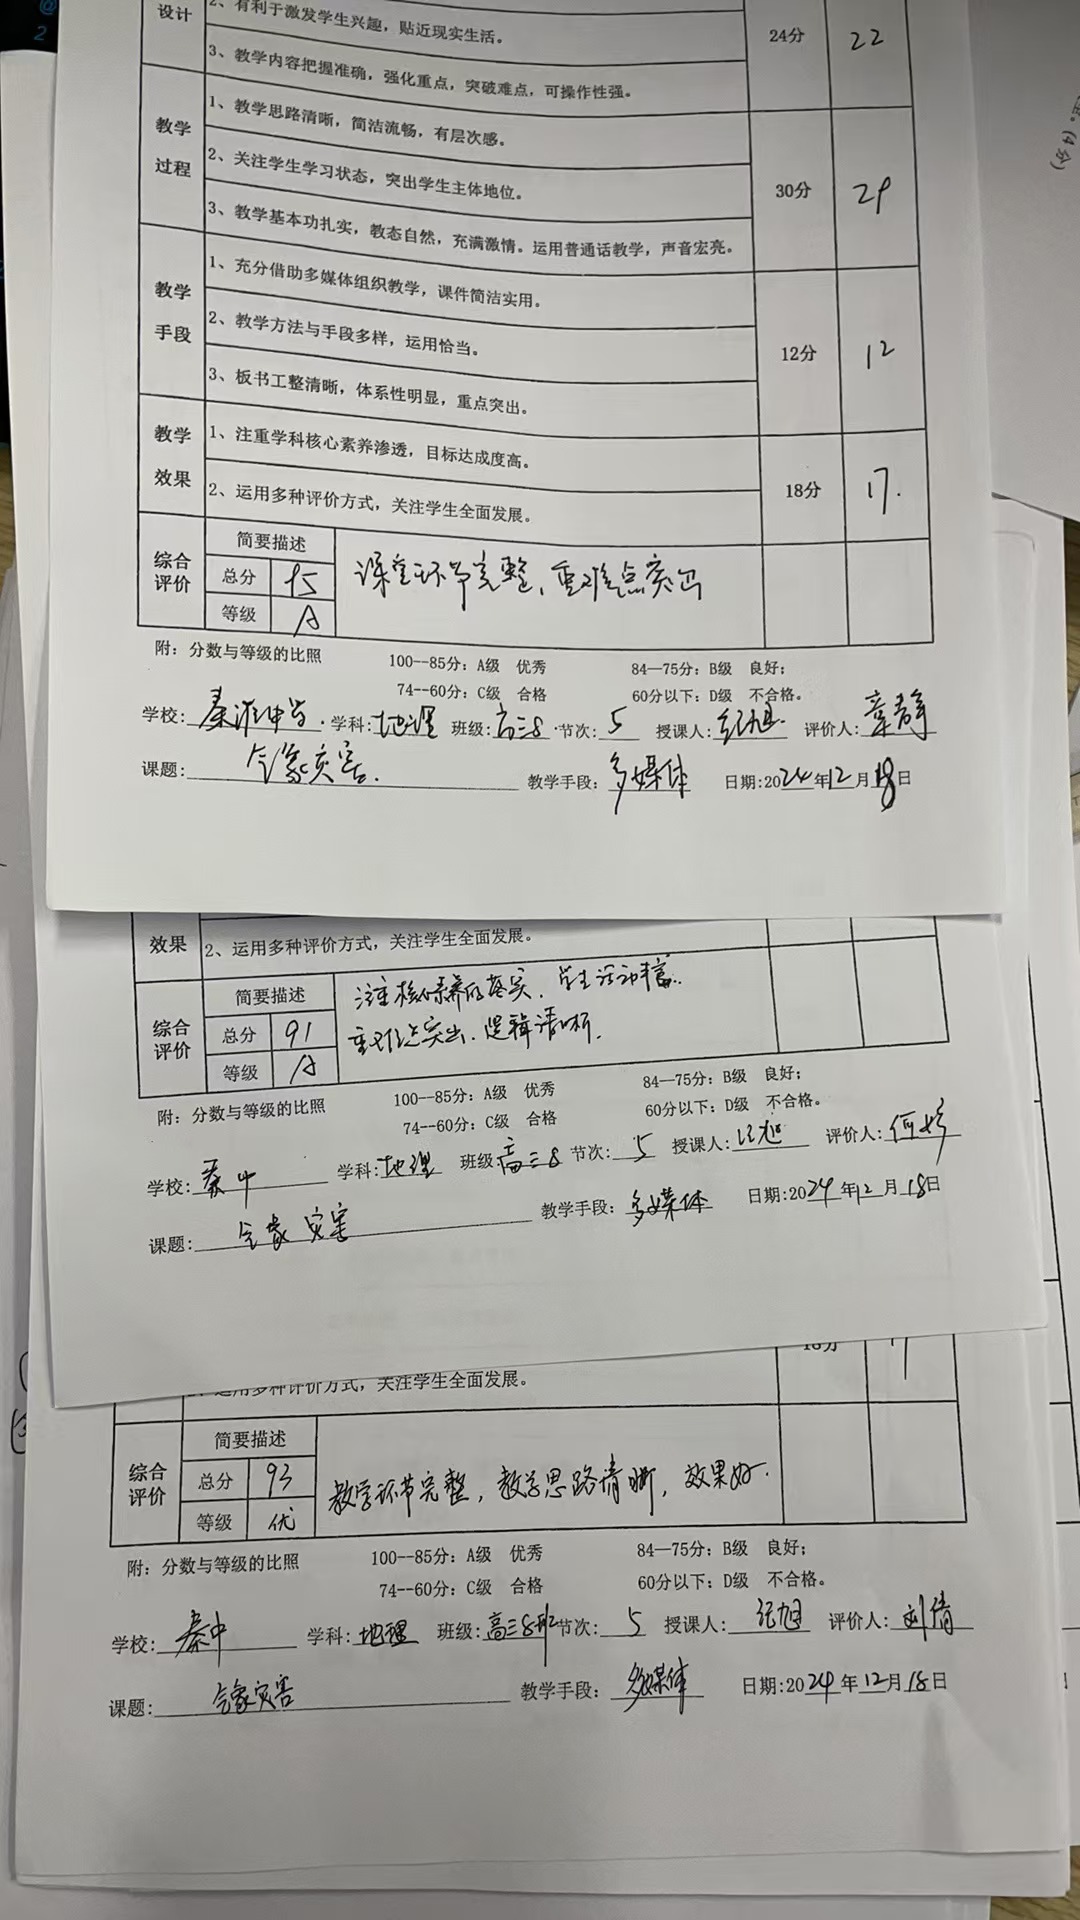 设计
2、有利于激发学生兴趣，贴近现实生活。
24分 22
3、教学内容把握准确，强化重点，突破难点，可操作性强。
教学
过程
1、教学思路清晰，简洁流畅，有层次感。
2、关注学生学习状态，突出学生主体地位。
30分 29
3、教学基本功扎实，教态自然，充满激情。运用普通话教学，声音宏亮。
教学
手段
1、充分借助多媒体组织教学，课件简洁实用。
2、教学方法与手段多样，运用恰当。
12分 12
3、板书工整清晰，体系性明显，重点突出。
教学
效果
1、注重学科核心素养渗透，目标达成度高。
18分 17.
2、运用多种评价方式，关注学生全面发展。
综合
评价
简要描述
总分 95
等级 A
课堂环节完整、重难点突出
附：分数与等级的比照 100--85分：A级 优秀 84—75分：B级 良好；
74--60分：C级 合格 60分以下：D级 不合格。
学校: 秦淮中学 学科: 地理 班级: 高三8 节次: 5 授课人: 评价人: 章静
课题: 气象灾害. 教学手段: 多媒体 日期:2024年12月18日
效果 2、运用多种评价方式，关注学生全面发展。
综合
评价
简要描述
总分 91
等级 A
注重核心素养的落实，学生活动丰富.
重难点突出、逻辑清晰.
附：分数与等级的比照 100--85分：A级 优秀 84—75分：B级 良好；
74--60分：C级 合格 60分以下：D级 不合格。
学校: 秦中 学科: 地理 班级: 高三8 节次: 5 授课人: 评价人: 何婷
课题: 气象灾害 教学手段: 多媒体 日期:2024年12月18日
18分 17
运用多种评价方式，关注学生全面发展。
综合
评价
简要描述
总分 93
等级 优
教学环节完整，教学思路清晰，效果好.
附：分数与等级的比照 100--85分：A级 优秀 84—75分：B级 良好；
74--60分：C级 合格 60分以下：D级 不合格。
学校: 秦中 学科: 地理 班级: 高三8班 节次: 5 授课人: 评价人: 刘倩
课题: 气象灾害 教学手段: 多媒体 日期:2024年12月18日
(4分)